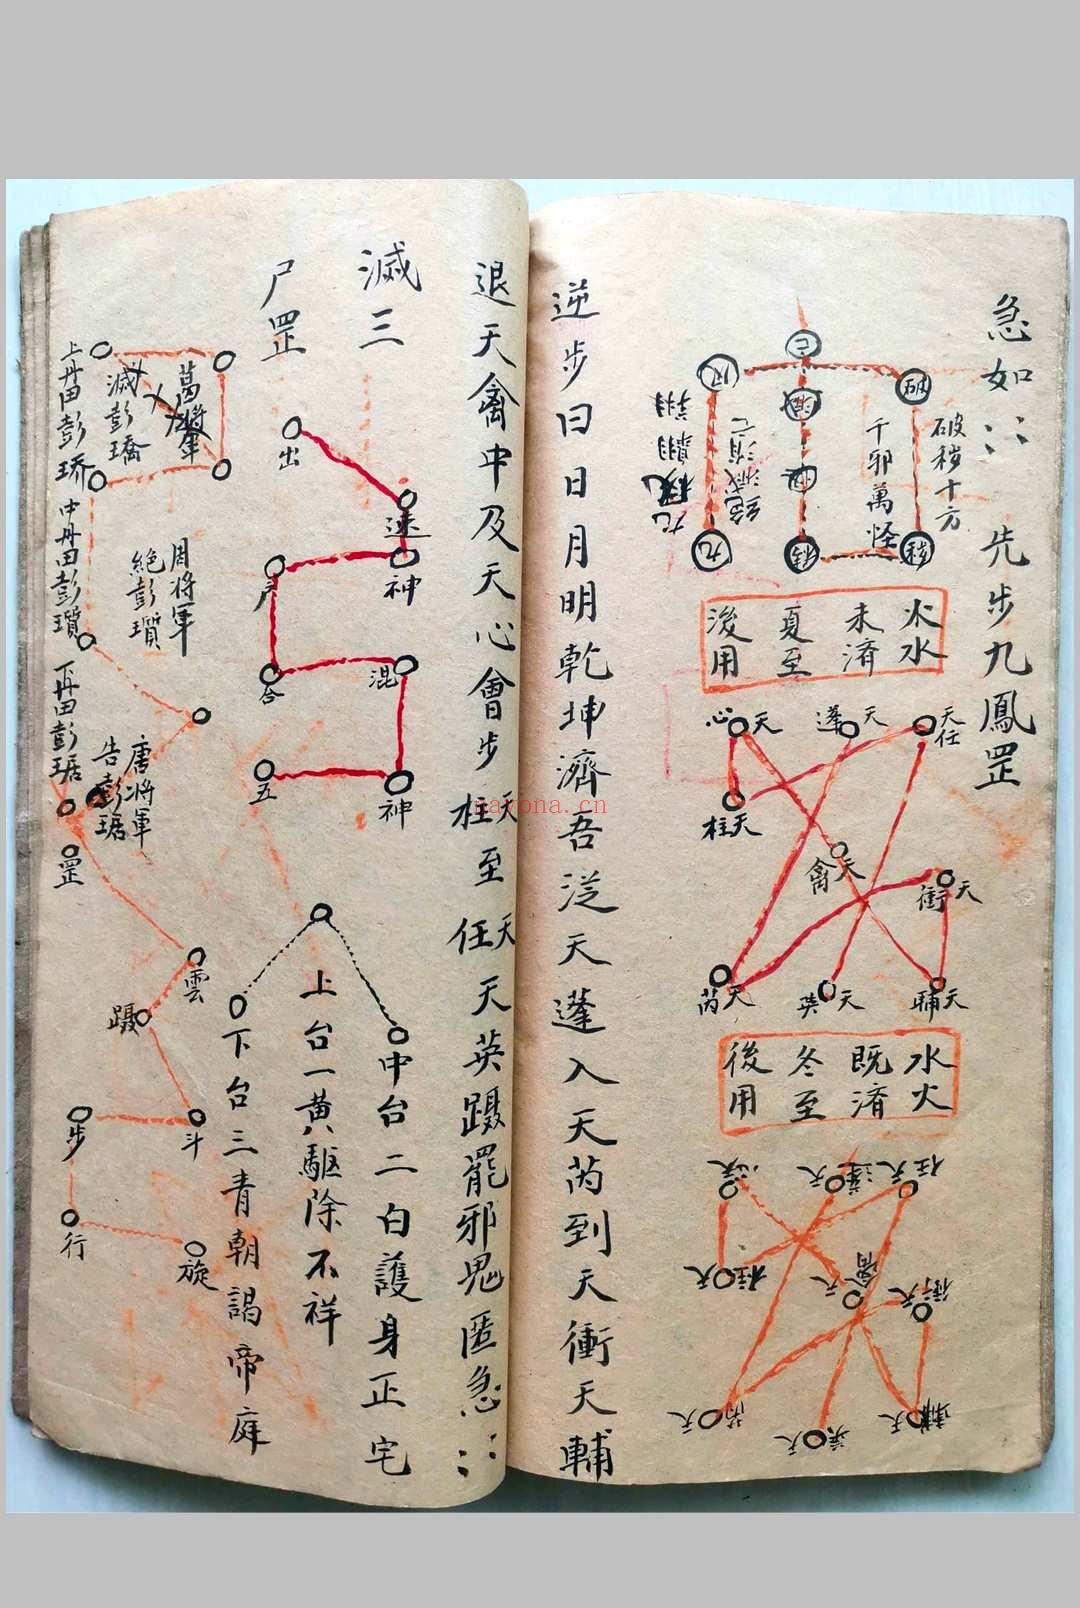 急如⺀⺀ 先步九鳳罡
破穢十方
千邪萬怪
絕滅消亡
九鳳翱翔
火水
未濟
夏至
後用
天心
天蓬
天任
天柱
天禽
天衝
天芮
天英
天輔
水火
既濟
冬至
後用
天心
天蓬
天任
天柱
天禽
天衝
天芮
天英
天輔
逆步曰日月明乾坤濟吾泛天蓬入天芮到天衝天輔
退天禽中及天心會步天柱至天任天英躡罷邪鬼匿急⺀⺀
滅三
尸罡
出
速
神
尸
合
混
神
五
中台二白護身正宅
上台一黄驅除不祥
下台三青朝謁帝庭
葛將軍
滅彭璚
周將軍
絕彭瓆
唐將軍
告彭琚
上丹田彭琈 中丹田彭瓆 下丹田彭琚
罡
雲
躡
斗
步
行
旋
nayona.cn